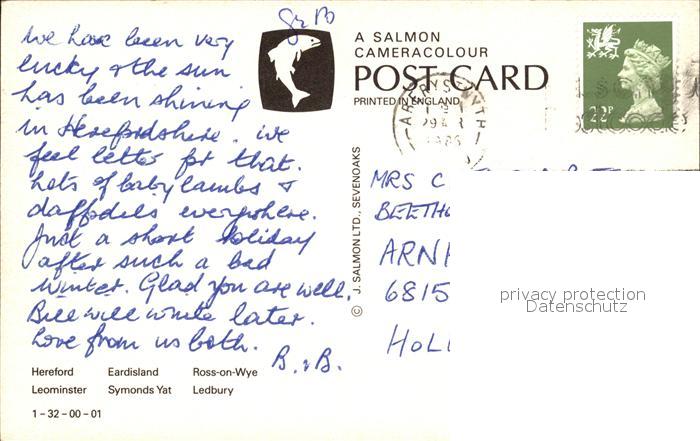 We have been very
lucky & the sun
has been shining
in Herefordshire. We
feel better for that.
Lots of baby lambs &
daffodils everywhere.
Just a short holiday
after such a bad
winter. Glad you are well.
Bill will write later.
Love from us both.
B. & B.
Hereford Eardisland Ross-on-Wye
Leominster Symonds Yat Ledbury
1-32-00-01
A SALMON
CAMERACOLOUR
POST CARD
PRINTED IN ENGLAND
© J. SALMON LTD., SEVENOAKS
22P
MRS C
ARN
6815
HOL
privacy protection
Datenschutz